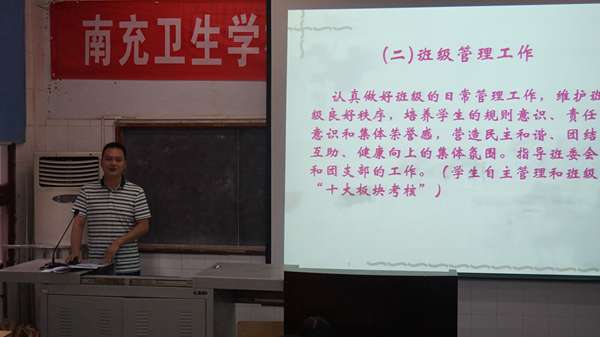 南充卫生学
(二)班级管理工作
认真做好班级的日常管理工作，维护班
级良好秩序，培养学生的规则意识、责任
意识和集体荣誉感，营造民主和谐、团结
互助、健康向上的集体氛围。指导班委会
和团支部的工作。（学生自主管理和班级
“十大板块考核”）